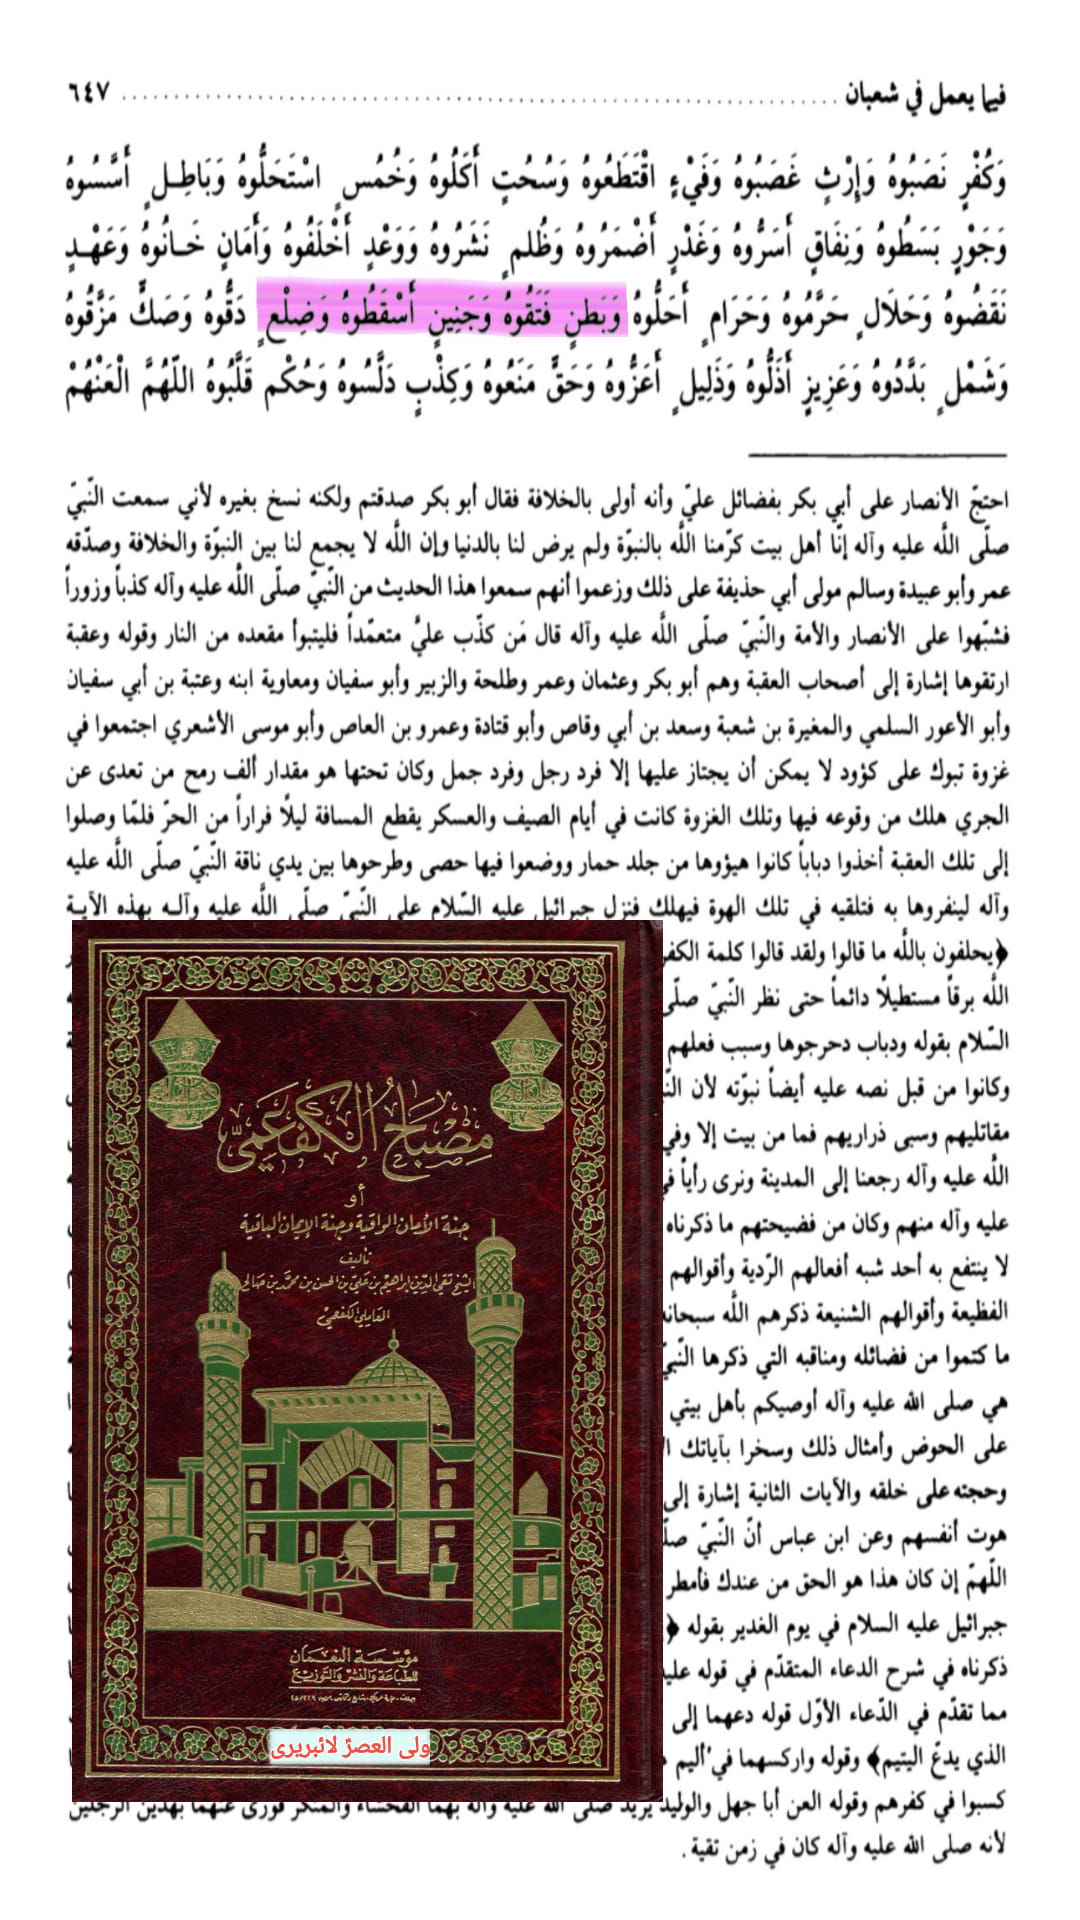 فيما يعمل في شعبان ........ ٦٤٧
وَكُفْرٍ نَصَبُوهُ وَإِرْثٍ غَصَبُوهُ وَفَيْءٍ اقْتَطَعُوهُ وَسُحْتٍ أَكَلُوهُ وَخُمُسٍ اسْتَحَلُّوهُ وَبَاطِلٍ أَسَّسُوهُ
وَجَوْرٍ بَسَطُوهُ وَنِفَاقٍ أَسَرُّوهُ وَغَدْرٍ أَضْمَرُوهُ وَظُلمٍ نَشَرُوهُ وَوَعْدٍ أَخْلَفُوهُ وَأَمَانٍ خَانُوهُ وَعَهْدٍ
نَقَضُوهُ وَحَلَالٍ حَرَّمُوهُ وَحَرَامٍ أَحَلُّوهُ وَبَطنٍ فَتَقُوهُ وَجَنِينٍ أَسْقَطُوهُ وَضِلْعٍ دَقُّوهُ وَصَكٍّ مَزَّقُوهُ
وَشَمْلٍ بَدَّدُوهُ وَعَزِيزٍ أَذَلُّوهُ وَذَلِيلٍ أَعَزُّوهُ وَحَقٍّ مَنَعُوهُ وَكِذْبٍ دَلَّسُوهُ وَحُكْمٍ قَلَّبُوهُ اللّهُمَّ الْعَنْهُمْ
احتجّ الأنصار على أبي بكر بفضائل عليّ وأنه أولى بالخلافة فقال أبو بكر صدقتم ولكنه نسخ بغيره لأني سمعت النّبيّ
صلّى اللَّه عليه وآله إنّا أهل بيت كرّمنا اللَّه بالنبوّة ولم يرض لنا بالدنيا وإن اللَّه لا يجمع لنا بين النبوّة والخلافة وصدّقه
عمر وأبو عبيدة وسالم مولى أبي حذيفة على ذلك وزعموا أنهم سمعوا هذا الحديث من النّبيّ صلّى اللَّه عليه وآله كذباً وزوراً
فشبّهوا على الأنصار والأمة والنّبيّ صلّى اللَّه عليه وآله قال مَن كذّب عليُّ متعمّداً فليتبوأ مقعده من النار وقوله وعقبة
ارتقوها إشارة إلى أصحاب العقبة وهم أبو بكر وعثمان وعمر وطلحة والزبير وأبو سفيان ومعاوية ابنه وعتبة بن أبي سفيان
وأبو الأعور السلمي والمغيرة بن شعبة وسعد بن أبي وقاص وأبو قتادة وعمرو بن العاص وأبو موسى الأشعري اجتمعوا في
غزوة تبوك على كؤود لا يمكن أن يجتاز عليها إلا فرد رجل وفرد جمل وكان تحتها هو مقدار ألف رمح من تعدى عن
الجري هلك من وقوعه فيها وتلك الغزوة كانت في أيام الصيف والعسكر يقطع المسافة ليلًا فراراً من الحرّ فلمّا وصلوا
إلى تلك العقبة أخذوا دباباً كانوا هيؤوها من جلد حمار ووضعوا فيها حصى وطرحوها بين يدي ناقة النّبيّ صلّى اللَّه عليه
وآله لينفروها به فتلقيه في تلك الهوة فيهلك فنزل جبرائيل عليه السّلام على النّبيّ صلّى اللَّه عليه وآله بهذه الآية
﴿يحلفون باللَّه ما قالوا ولقد قالوا كلمة الكفر
اللَّه برقاً مستطيلًا دائماً حتى نظر النّبيّ صلّى
السّلام بقوله ودباب دحرجوها وسبب فعلهم
وكانوا من قبل نصه عليه أيضاً نبوّته لأن
مقاتليهم وسبى ذراريهم فما من بيت إلا وفي
اللَّه عليه وآله رجعنا إلى المدينة ونرى رأياً
عليه وآله منهم وكان من فضيحتهم ما ذكرناه
لا ينتفع به أحد شبه أفعالهم الرّدية وأقوالهم
الفظيعة وأقوالهم الشنيعة ذكرهم اللَّه سبحانه
ما كتموا من فضائله ومناقبه التي ذكرها النّبيّ
هي صلى الله عليه وآله أوصيكم بأهل بيتي
على الحوض وأمثال ذلك وسخرا بآياتك
وحجته على خلقه والآيات الثانية إشارة إلى
هوت أنفسهم وعن ابن عباس أنّ النّبيّ
اللّهمّ إن كان هذا هو الحق من عندك فأمطر
جبرائيل عليه السلام في يوم الغدير بقوله ﴿
ذكرناه في شرح الدعاء المتقدّم في قوله
مما تقدّم في الدّعاء الأوّل قوله دعهما إلى
الذي يدعّ اليتيم﴾ وقوله واركسهما في أليم
كسبوا في كفرهم وقوله العن أبا جهل والوليد يريد صلى الله عليه وآله بهما الفحشاء والمنكر فورّى عنهما بهذين الرجلين
لأنه صلى الله عليه وآله كان في زمن تقية .
مِصْبَاحُ الكَفعَمِيّ
أو
جنة الأمان الواقية وجنة الإيمان الباقية
تأليف
الشيخ تقي الدين ابراهيم بن علي بن الحسن بن محمد بن صالح
العاملي الكفعمي
مؤسسة النعمان
للطباعة والنشر والتوزيع
ولی العصرؑ لائبریری